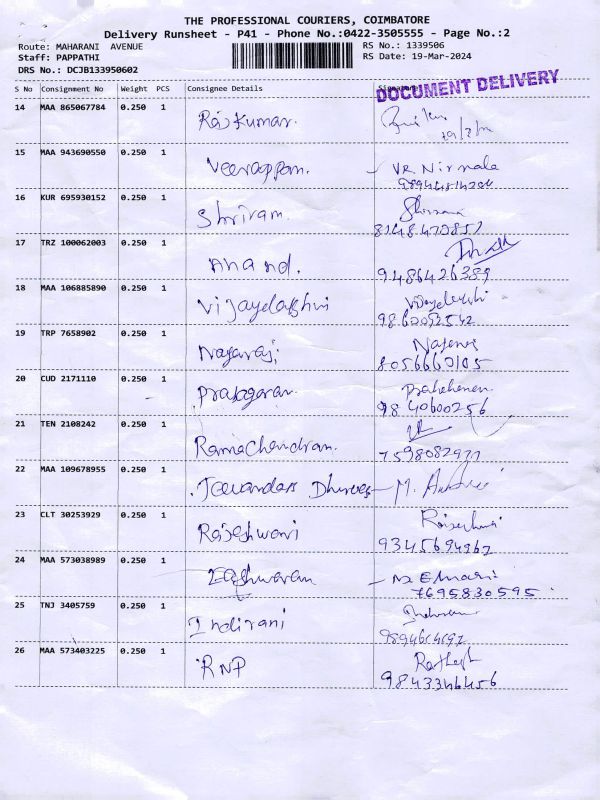 THE PROFESSIONAL COURIERS, COIMBATORE
Delivery Runsheet - P41 - Phone No.:0422-3505555 - Page No.:2
Route: MAHARANI AVENUE
RS No.: 1339506
Staff: PAPPATHI
RS Date: 19-Mar-2024
DRS No.: DCJB133950602
DOCUMENT DELIVERY
S No Consignment No Weight PCS Consignee Details Signature
14 MAA 865067784 0.250 1 Raj Kumar.
15 MAA 943690550 0.250 1 Veerappan. VR. Nirmala
16 KUR 695930152 0.250 1 Shriram.
17 TRZ 100062003 0.250 1 Anand.
9486426389
18 MAA 106885890 0.250 1 Vijayelakshmi
9860092542
19 TRP 7658902 0.250 1 Nagaraj;
8056660105
20 CUD 2171110 0.250 1
9840600256
21 TEN 2108242 0.250 1 Ramachendran.
7598082971
22 MAA 109678955 0.250 1 M.
23 CLT 30253929 0.250 1 Rajeshwari
9345694967
24 MAA 573038989 0.250 1 Eashwaran
7695830595
25 TNJ 3405759 0.250 1 Indirani
26 MAA 573403225 0.250 1 RNP
9843346456